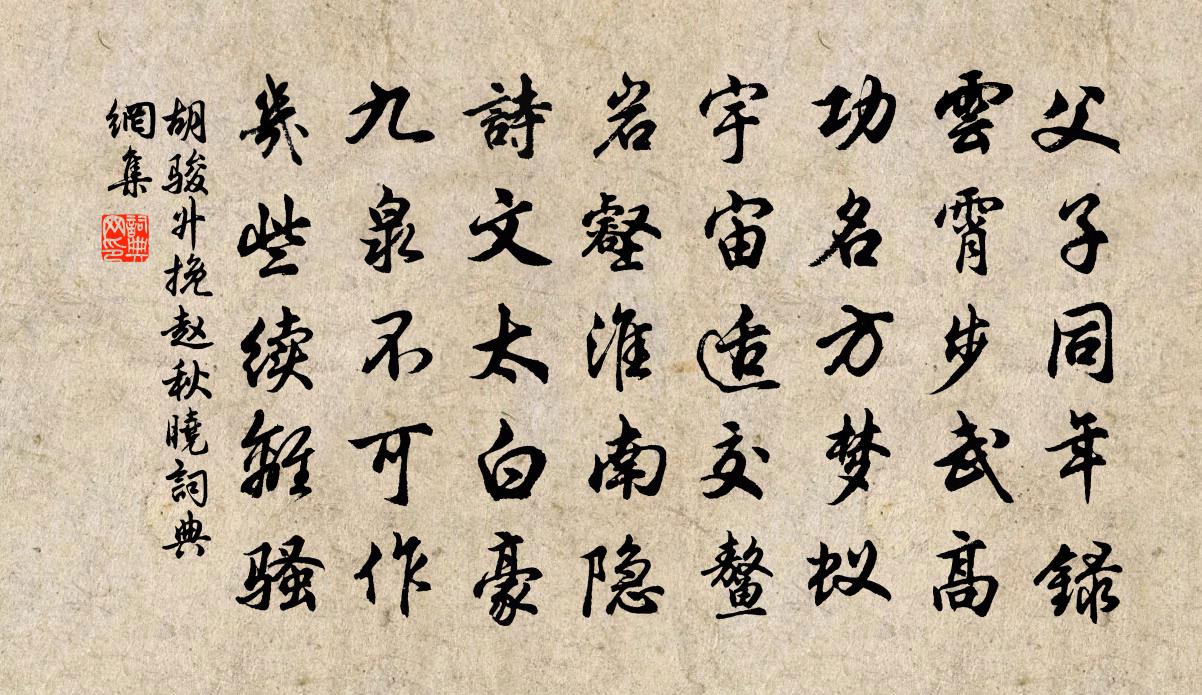 父子同年錄
雲霄步武高
功名方梦蚁
宇宙适交鳌
岩壑淮南隐
詩文太白豪
九泉不可作
幾些续離骚
胡骏升挽赵秋曉詞典
網集
詞典
网印